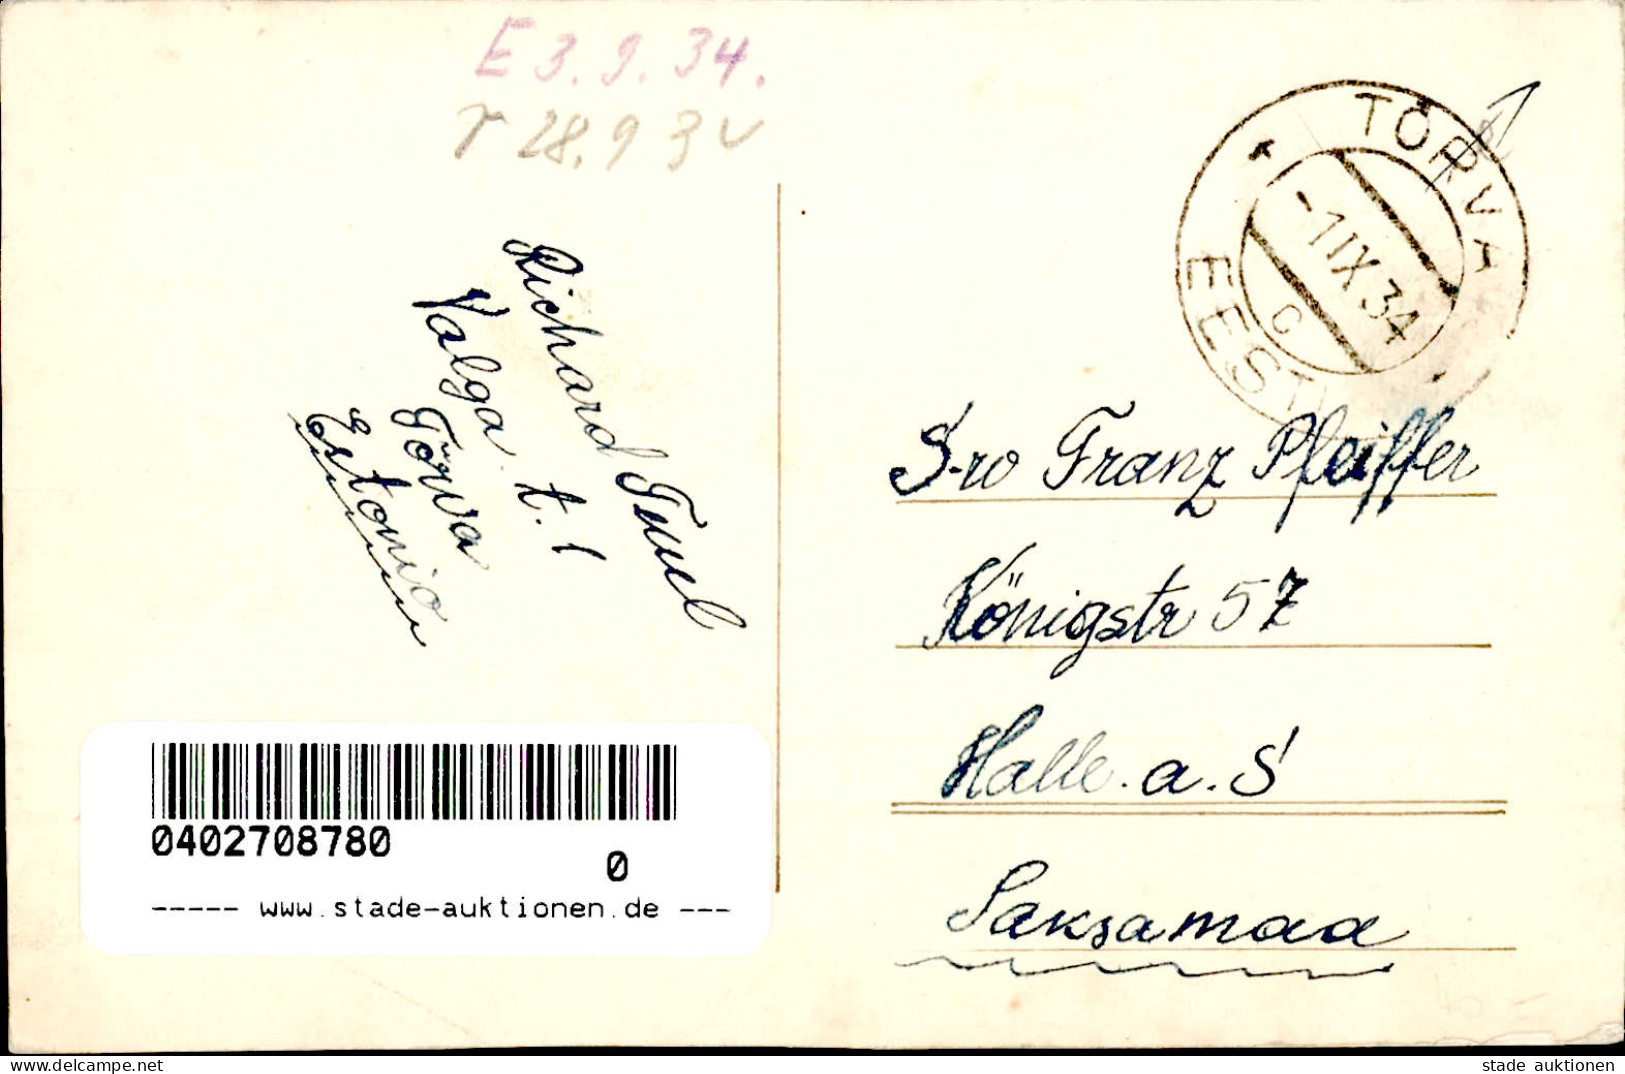 E 3.9.34.
r 28.9 34
TÕRVA
-1 IX 34
C
EESTI
Richard Tuul
Valga t. 1
Tõrva
Estonia
S-ro Franz Pfeiffer
Königstr 57
Halle. a. S
Saksamaa
0402708780
0
----- www.stade-auktionen.de ---
stade auktionen